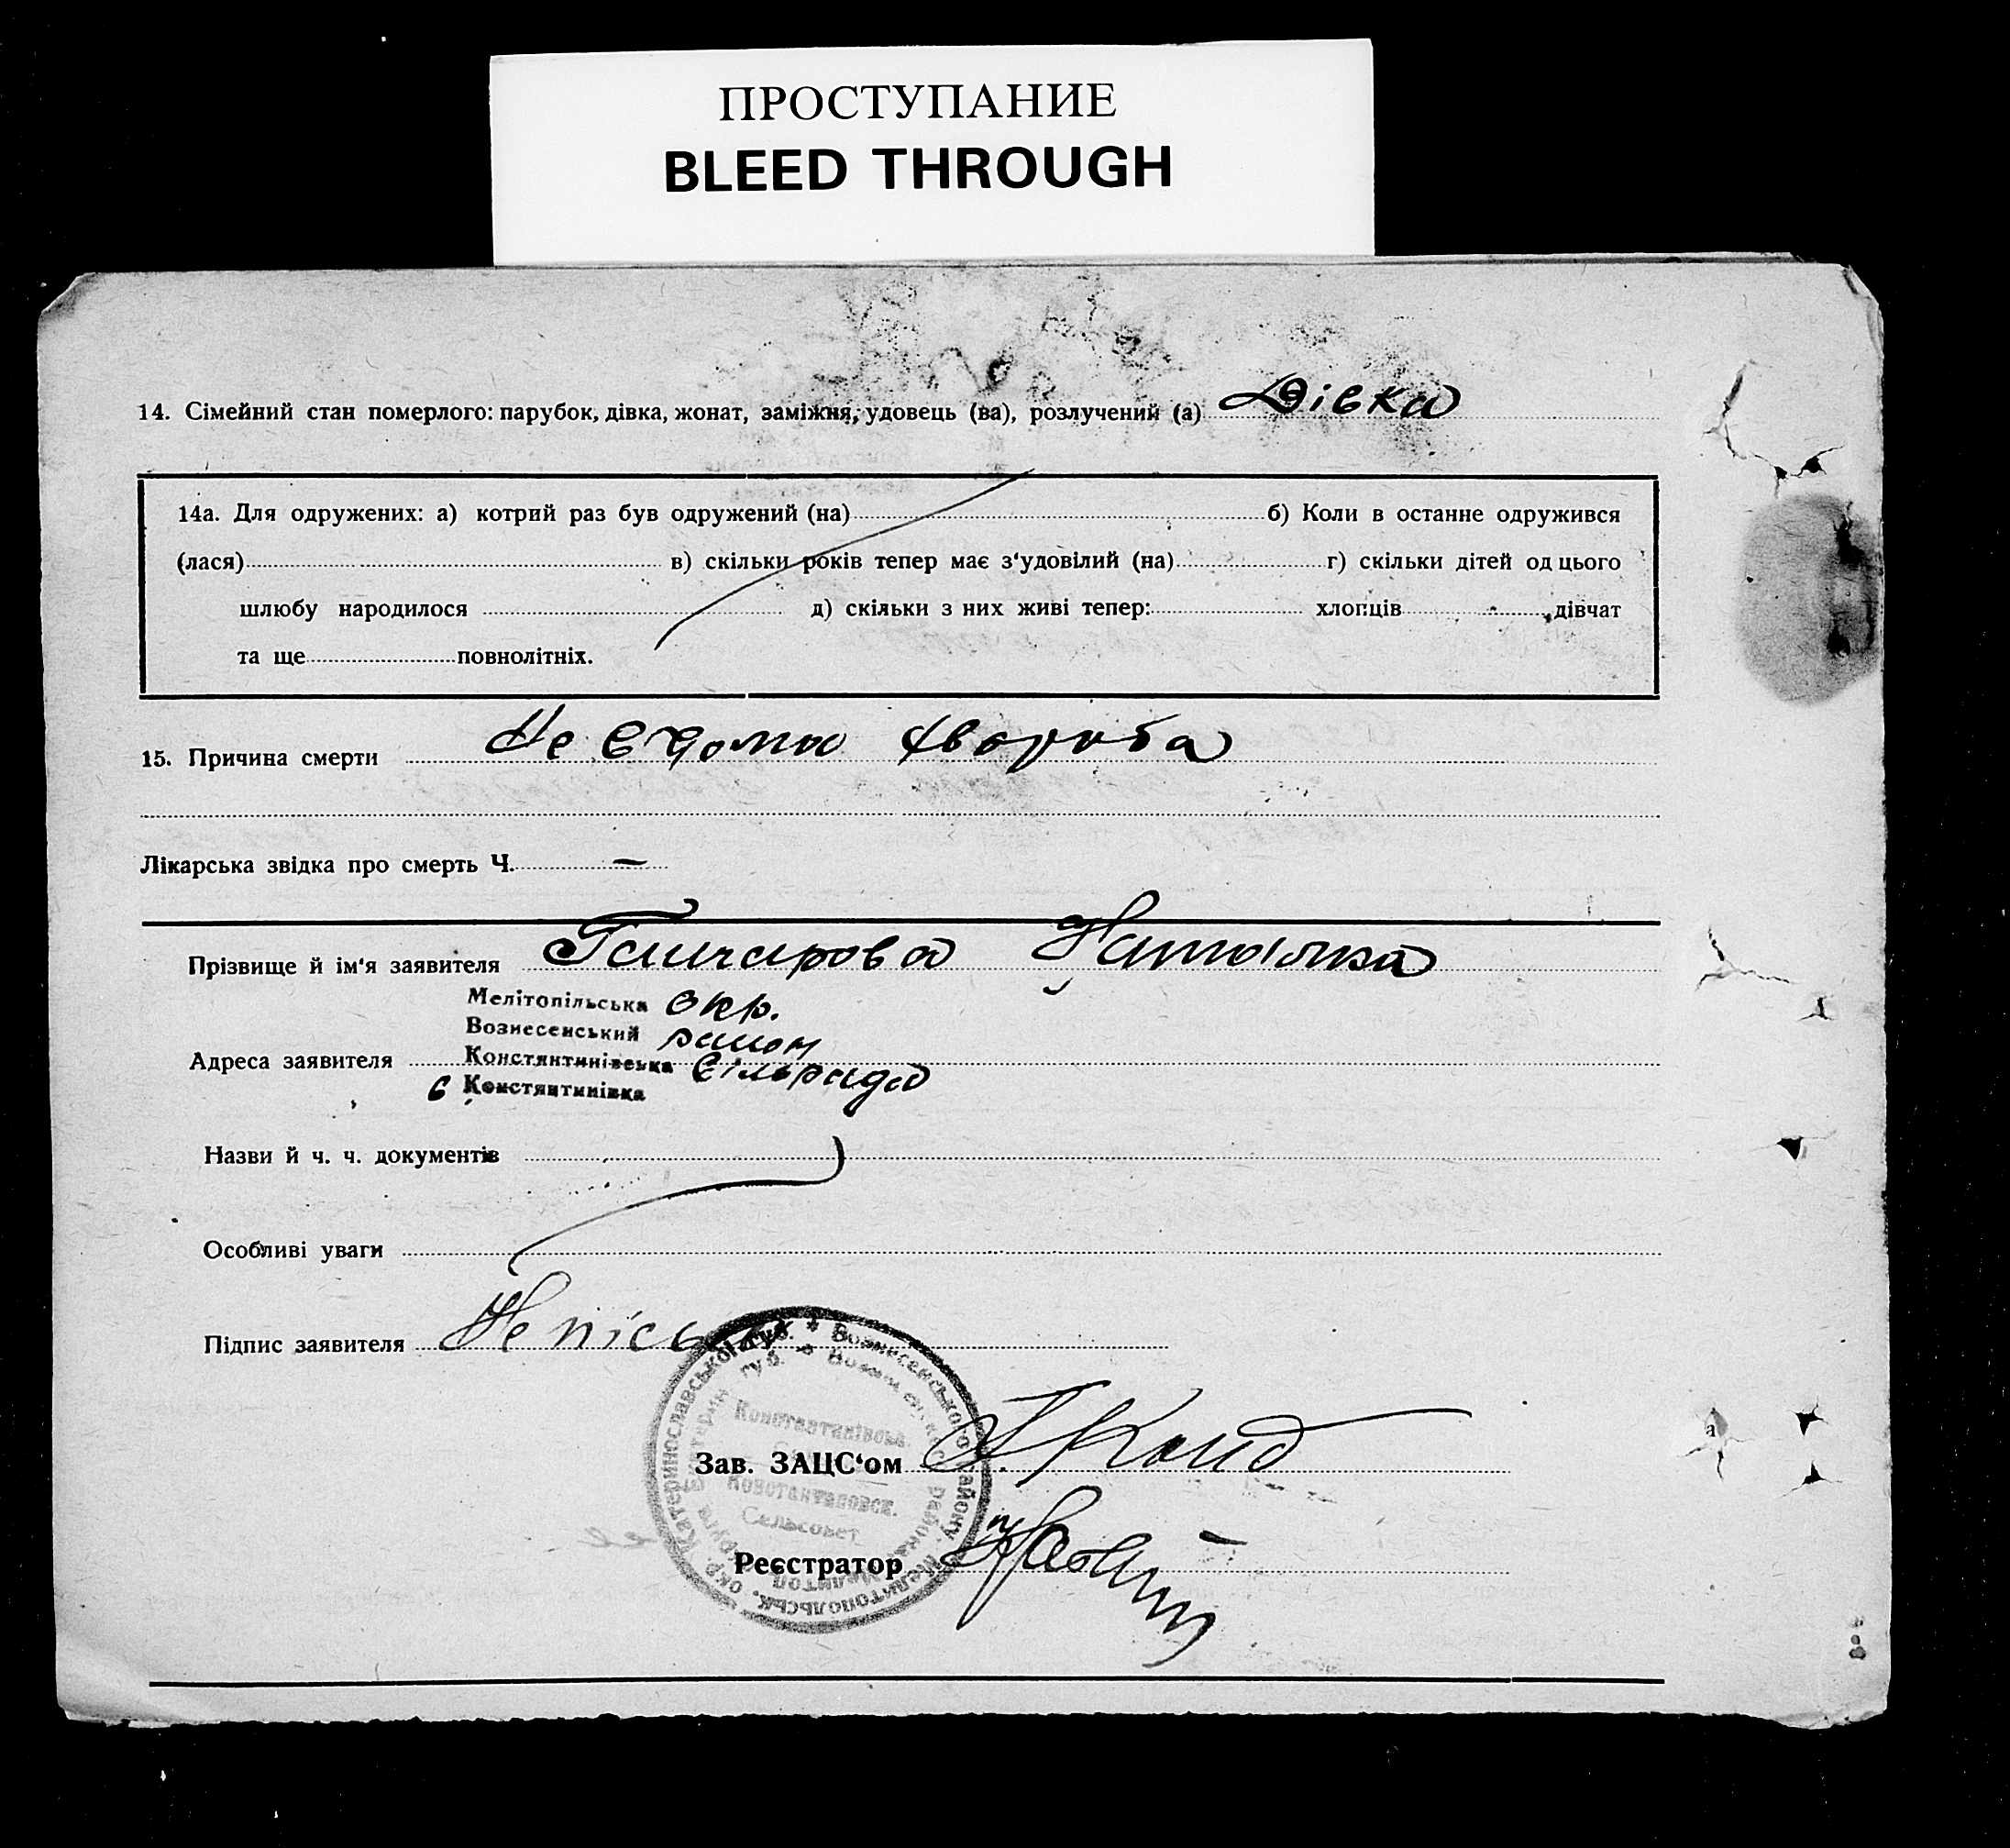 ПРОСТУПАНИЕ
BLEED THROUGH
14. Сімейний стан померлого: парубок, дівка, жонат, заміжня, удовець (ва), розлучений (а) Дівка
14а. Для одружених: а) котрий раз був одружений (на) б) Коли в останне одружився
(лася) в) скільки років тепер має з‘удовілий (на) г) скільки дітей од цього
шлюбу народилося д) скільки з них живі тепер: хлопців , дівчат
та ще повнолітніх.
15. Причина смерти Не вдома хвороба
Лікарська звідка про смерть Ч. —
Прізвище й ім‘я заявителя Наталка
Мелітопільська окр.
Вознесенський район
Адреса заявителя Константинівська сільрада
с Константинівка
Назви й ч. ч. документів
Особливі уваги
Підпис заявителя Не пісьм
Катеринославської губ. * Вознесенського району Мелитопольськ. окр.
Константинівськ.
Зав. ЗАЦС‘ом
Константиновск.
Сельсовет
Реєстратор